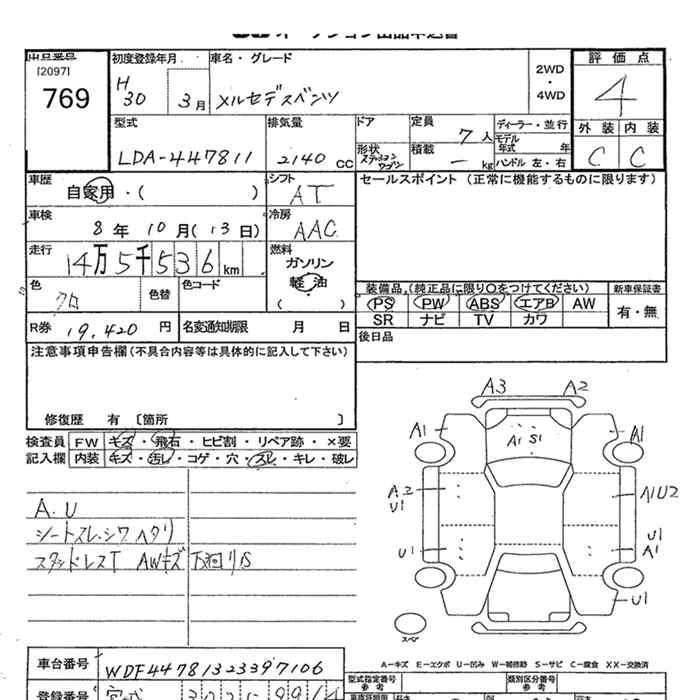 出品番号
[2097]
769
初度登録年月
H30 3月
車名・グレード
メルセデスベンツ
2WD
・
4WD
評価点
4
外装 内装
C C
型式
LDA-447811
排気量
2140 CC
ドア
形状
ステーションワゴン
定員 7人
積載 - kg
ディーラー・並行
モデル年式 年
ハンドル 左・右
車歴
自家用・( )
シフト
AT
セールスポイント (正常に機能するものに限ります)
車検
8年 10月(13日)
冷房
AAC
走行
14万5千536km
燃料
ガソリン
軽油
( )
色
クロ
色替
色コード
装備品 (純正品に限り○をつけてください)
新車保証書
PS PW ABS エアB AW
有・無
SR ナビ TV カワ
R券 19,420円
名変通知期限 月 日
後日品
注意事項申告欄(不具合内容等は具体的に記入して下さい)
修復歴 有 〔箇所 〕
検査員 FW キズ・飛石・ヒビ割・リペア跡・×要
記入欄 内装 キズ・汚レ・コゲ・穴・スレ・キレ・破レ
A.U
シートスレ、シワ ヘタリ
スタッドレスT AWキズ 下回りS
A3 A2
A1 A1 S1 A1
A2 U1
A1U2
U1
U1 A1
U1
スペア
A-キズ E-エクボ U-凹み W-補修跡 S-サビ C-腐食 XX-交換済
車台番号 WDF44781323397106
型式指定番号
参考
類別区分番号
参考
登録番号